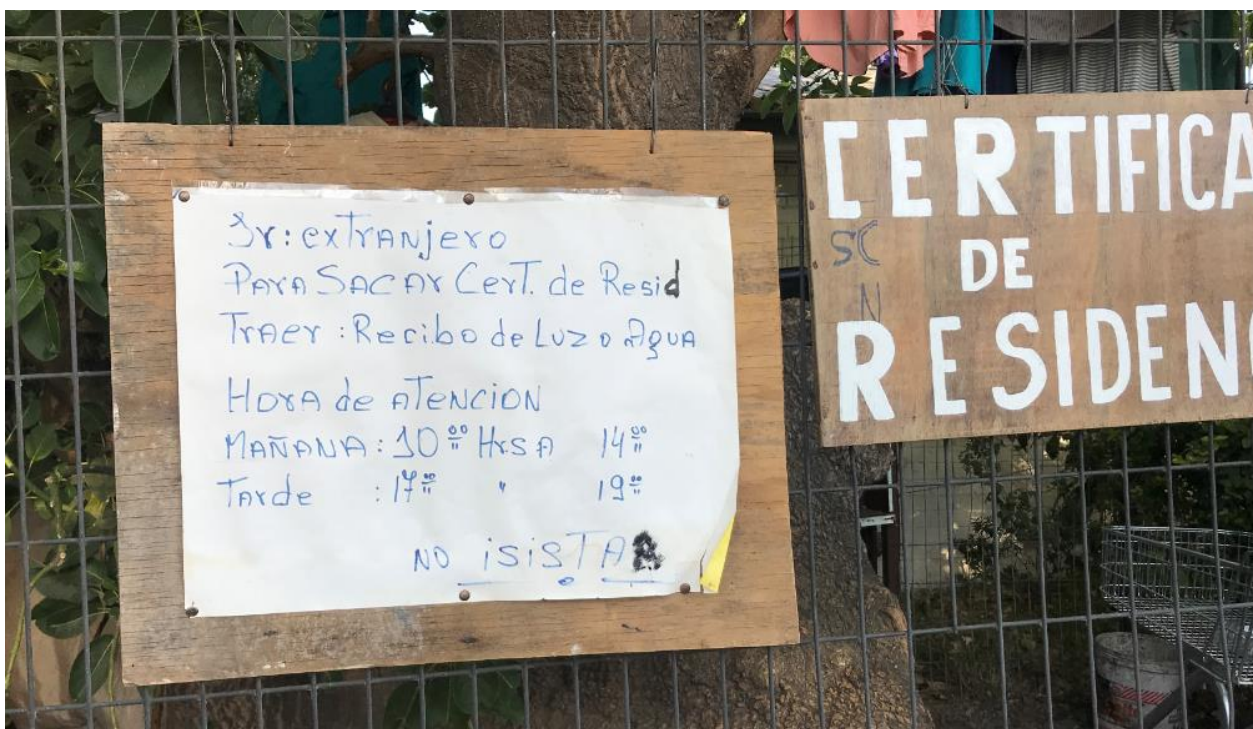 Sr: extranjero
Para Sacar Cert. de Resid
Traer : Recibo de Luz o Agua
Hora de Atencion
Mañana : 10 00 Hrs A 14 00
Tarde : 17 00 " 19 00
NO isistA
CERTIFICA
DE
RESIDENC
SC
N